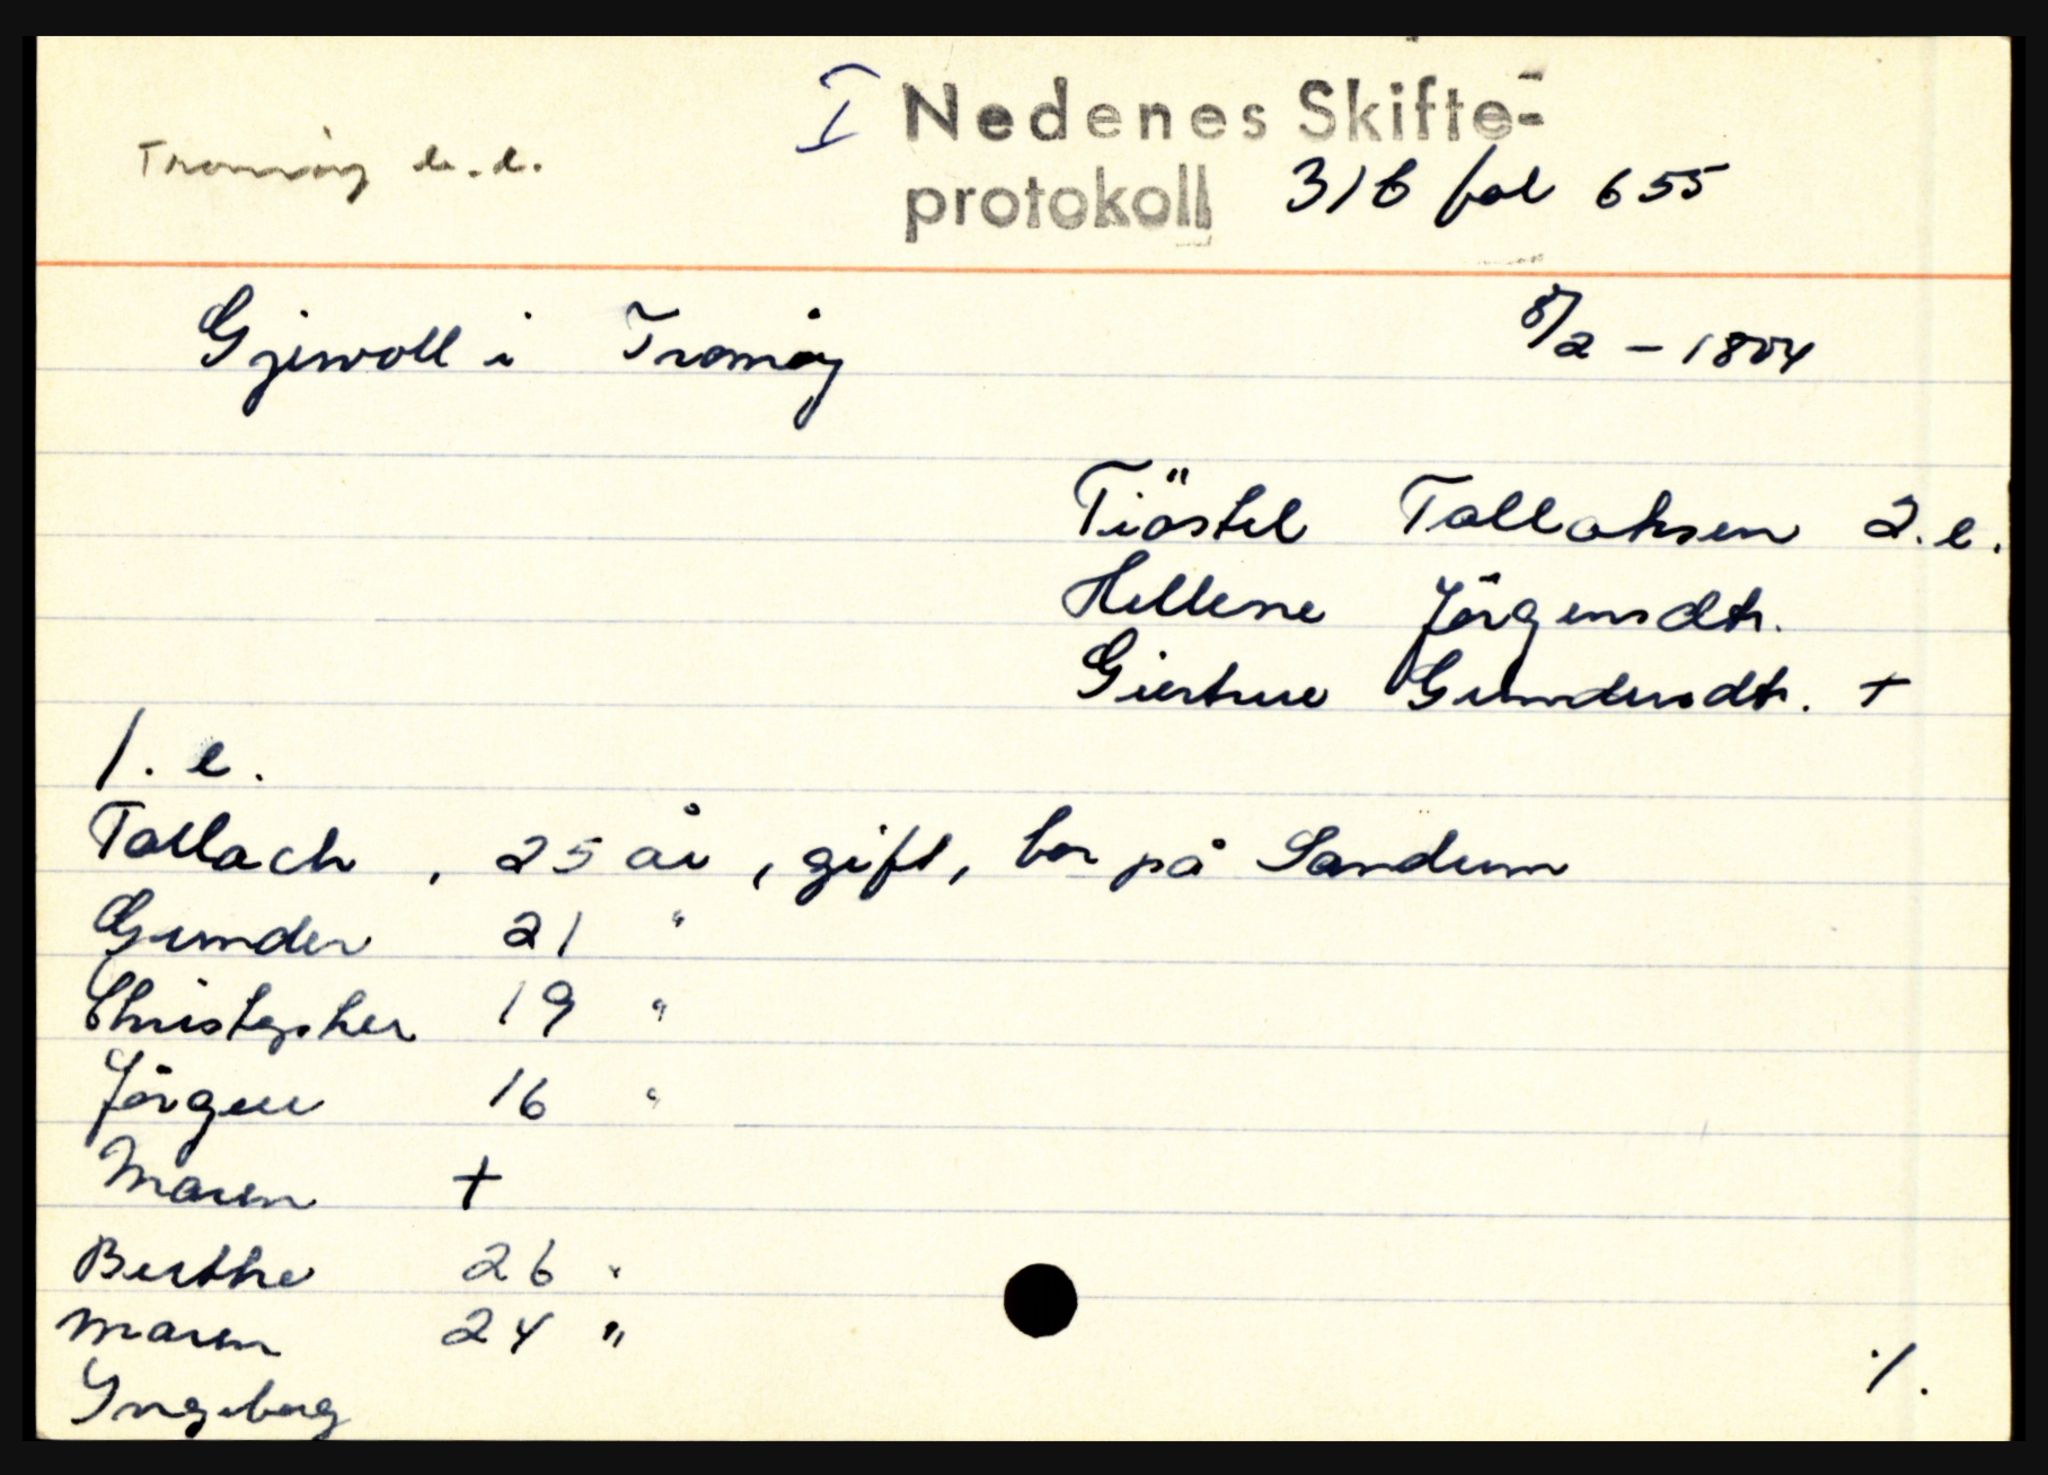 I Nedenes Skifte-
Tromöy
protokoll 31b fol 655
Gjervoll i Tromöy 8/2 - 1804
Tiöstel Tallaksen 2. e.
Hellene Jörgensdtr.
Giertrue Gundersdtr. +
1. e.
Tallach, 25 år, gift, bor på Sandum
Gunder 21 "
Christopher 19 "
Jörgen 16 "
Maren +
Berthe 26 "
Maren 24 "
Yngeborg
./.